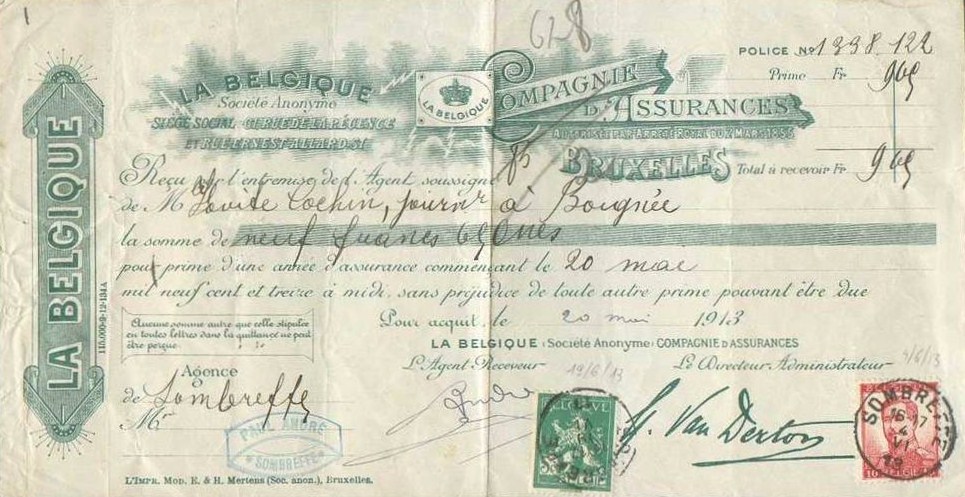 1
628
POLICE No 1338,122
Prime Fr 9 65
LA BELGIQUE
Société Anonyme
SIÈGE SOCIAL RUE DE LA RÉGENCE
ET RUE ERNEST ALLARD
LA BELGIQUE
COMPAGNIE
D'ASSURANCES
AUTORISÉE PAR ARRÊTÉ ROYAL DU MARS 1855
BRUXELLES
Total à recevoir Fr 9 65
LA BELGIQUE
115.000-9-12-134A
Reçu par l'entremise de l'Agent soussigné
de M Cochin, à Boignée
la somme de neuf francs 65
pour prime d'une année d'assurance commençant le 20 mai
mil neuf cent et treize à midi, sans préjudice de toute autre prime pouvant être due
Aucune somme autre que celle stipulée
en toutes lettres dans la quittance ne peut
être perçue
Pour acquit, le 20 mai 1913
LA BELGIQUE (Société Anonyme) COMPAGNIE D'ASSURANCES
L'Agent-Receveur
Le Directeur-Administrateur
19/6/13
4/6/13
Agence
de Sombreffe
Mr
PAUL ANDRÉ
SOMBREFFE
André
SOMBREFFE
16-17
4
VI
10
L'IMPR. MOD. E. & H. Mertens (Soc. anon.), Bruxelles.